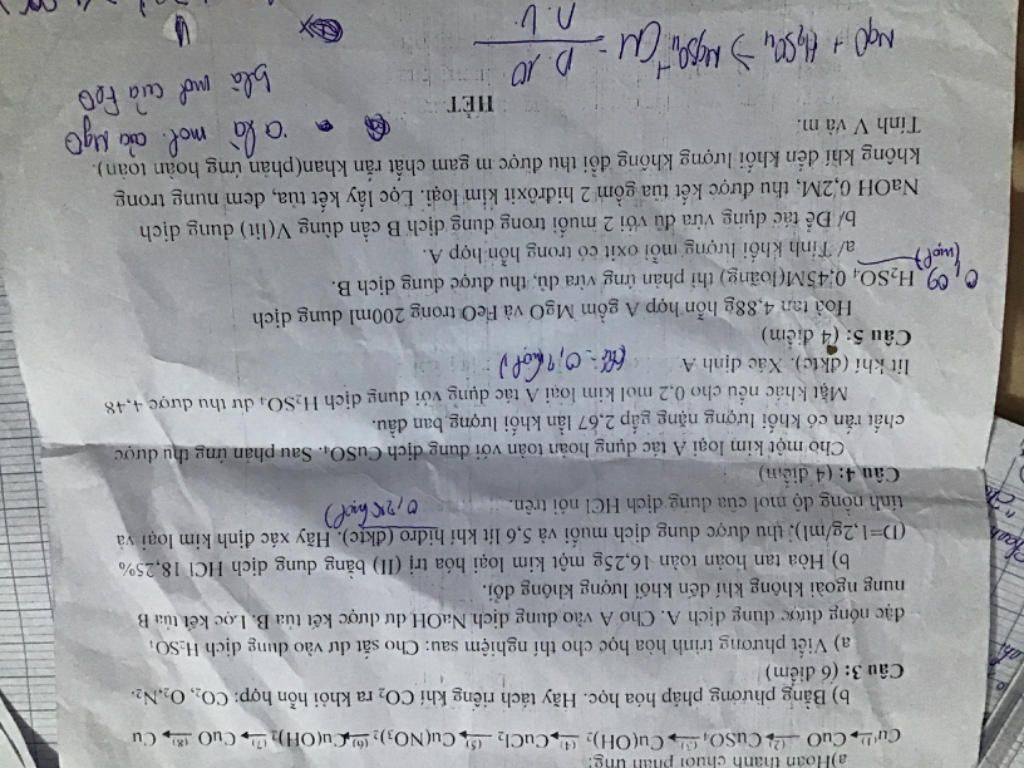 a)Hoàn thành chuỗi phản ứng:
Cu (1)→ CuO (2)→ CuSO₄ (3)→ Cu(OH)₂ (4)→ CuCl₂ (5)→ Cu(NO₃)₂ (6)→ Cu(OH)₂ (7)→ CuO (8)→ Cu
b) Bằng phương pháp hóa học. Hãy tách riêng khí CO₂ ra khỏi hỗn hợp: CO₂, O₂,N₂.
Câu 3: (6 điểm)
a) Viết phương trình hóa học cho thí nghiệm sau: Cho sắt dư vào dung dịch H₂SO₄
đặc nóng được dung dịch A. Cho A vào dung dịch NaOH dư được kết tủa B. Lọc kết tủa B
nung ngoài không khí đến khối lượng không đổi.
b) Hòa tan hoàn toàn 16,25g một kim loại hóa trị (II) bằng dung dịch HCl 18,25%
(D=1,2g/ml), thu được dung dịch muối và 5,6 lít khí hidro (đktc). Hãy xác định kim loại và
tính nồng độ mol của dung dịch HCl nói trên.
0,25(mol)
Câu 4: (4 điểm)
Cho một kim loại A tác dụng hoàn toàn với dung dịch CuSO₄. Sau phản ứng thu được
chất rắn có khối lượng nặng gấp 2,67 lần khối lượng ban đầu.
Mặt khác nếu cho 0,2 mol kim loại A tác dụng với dung dịch H₂SO₄ dư thu được 4,48
lít khí (đktc). Xác định A
Câu 5: (4 điểm)
Hoà tan 4,88g hỗn hợp A gồm MgO và FeO trong 200ml dung dịch
H₂SO₄ 0,45M(loãng) thì phản ứng vừa đủ, thu được dung dịch B.
0,09 (mol)
a/ Tính khối lượng mỗi oxit có trong hỗn hợp A.
b/ Để tác dụng vừa đủ với 2 muối trong dung dịch B cần dùng V(lít) dung dịch
NaOH 0,2M, thu được kết tủa gồm 2 hiđrôxit kim loại. Lọc lấy kết tủa, đem nung trong
không khí đến khối lượng không đổi thu được m gam chất rắn khan(phản ứng hoàn toàn).
Tính V và m.
a là mol của MgO
HẾT
b là mol của FeO
MgO + H₂SO₄ → MgSO₄ +